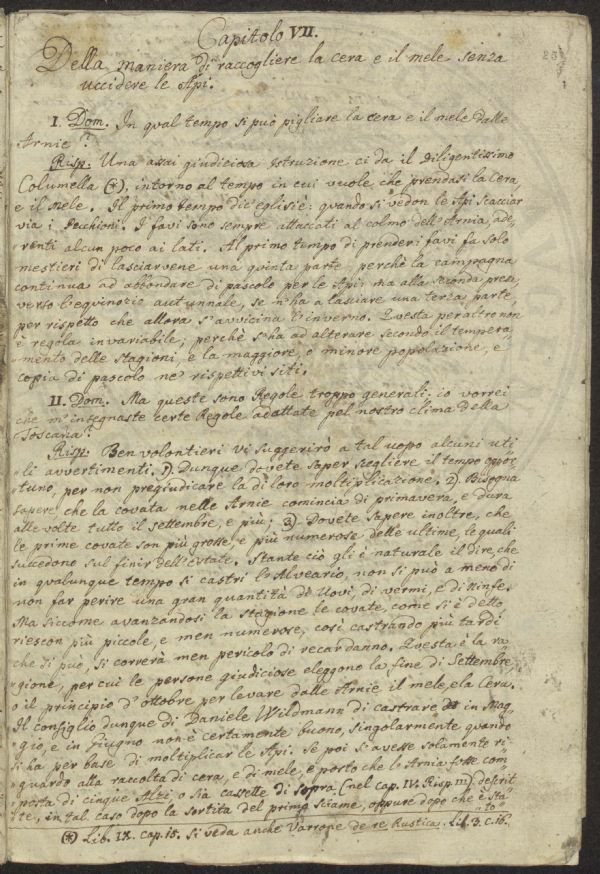 Capitolo VII.
Della maniera di raccogliere la cera e il mele senza
uccidere le Api.
I. Dom. In qual tempo si può pigliare la cera e il mele dalle
Arnie?
Risp. Una assai giudiciosa istruzione ci da il diligentissimo
Columella (*), intorno al tempo in cui vuole, che prendasi la Cera,
e il Mele. Il primo tempo dic'egli si è: quando si vedon le Api scacciar
via i Pecchioni. I favi sono sempre attaccati al colmo dell'Arnia, ade-
renti alcun poco ai lati. Al primo tempo di prender i favi fa solo
mestieri di lasciarvene una quinta parte, perchè la campagna
continua ad abbondare di pascolo per le Api; ma alla seconda presa,
verso l'equinozio autunnale, se n'ha a lasciare una terza parte
per rispetto che allora s'avvicina l'inverno. Questa per altro non
è regola invariabile; perchè s'ha ad alterare secondo il tempera-
mento delle Stagioni, e la maggiore, o minore popolazione, e
copia di pascolo ne' rispettivi siti.
II. Dom. Ma queste sono Regole troppo generali: io vorrei
che m'insegnaste certe Regole adattate pel nostro clima della
Toscana?
Risp: Ben volontieri vi suggerirò a tal uopo alcuni uti
li avvertimenti. 1) Dunque dovete saper scegliere il tempo oppor-
tuno, per non pregiudicare la di loro moltiplicazione. 2) Bisogna
sapere, che la covata nelle Arnie comincia di primavera, e dura
alle volte tutto il settembre, e più; 3) Dovete sapere inoltre, che
le prime covate son più grosse, e più numerose delle ultime, le quali
succedono sul finir dell'Estate. Stante ciò gli è naturale il dire, che
in qualunque tempo si castri lo Alveario, non si può a meno di
non far perire una gran quantità di Uovi, di vermi, e di Ninfe.
Ma siccome avanzandosi la Stagione le covate, come si è detto,
riescon più piccole, e men numerose, così castrando più tardi
che si può, si correrà men pericolo di recar danno. Questa è la ra-
gione, per cui le persone giudiciose eleggono la fine di Settembre
o il principio d'ottobre per levare dalle Arnie il mele, e la Cera.
Il consiglio dunque di Daniele Wildmann di castrare in Mag-
gio, e in Giugno non è certamente buono, singolarmente quando
si ha per base di moltiplicar le Api. Se poi si avesse solamente ri-
guardo alla raccolta di cera, e di mele, e posto che lo Arnia fosse com-
posta di cinque Alzi o sia cassette di sopra (nel cap. IV. Risp. III) descrit
te, in tal caso dopo la sortita del primo Sciame, oppure dopo che è sta-
to
(*) Lib. IX. cap. 15. Si veda anche Varrone de re Rustica. Lib. 3. c. 16.